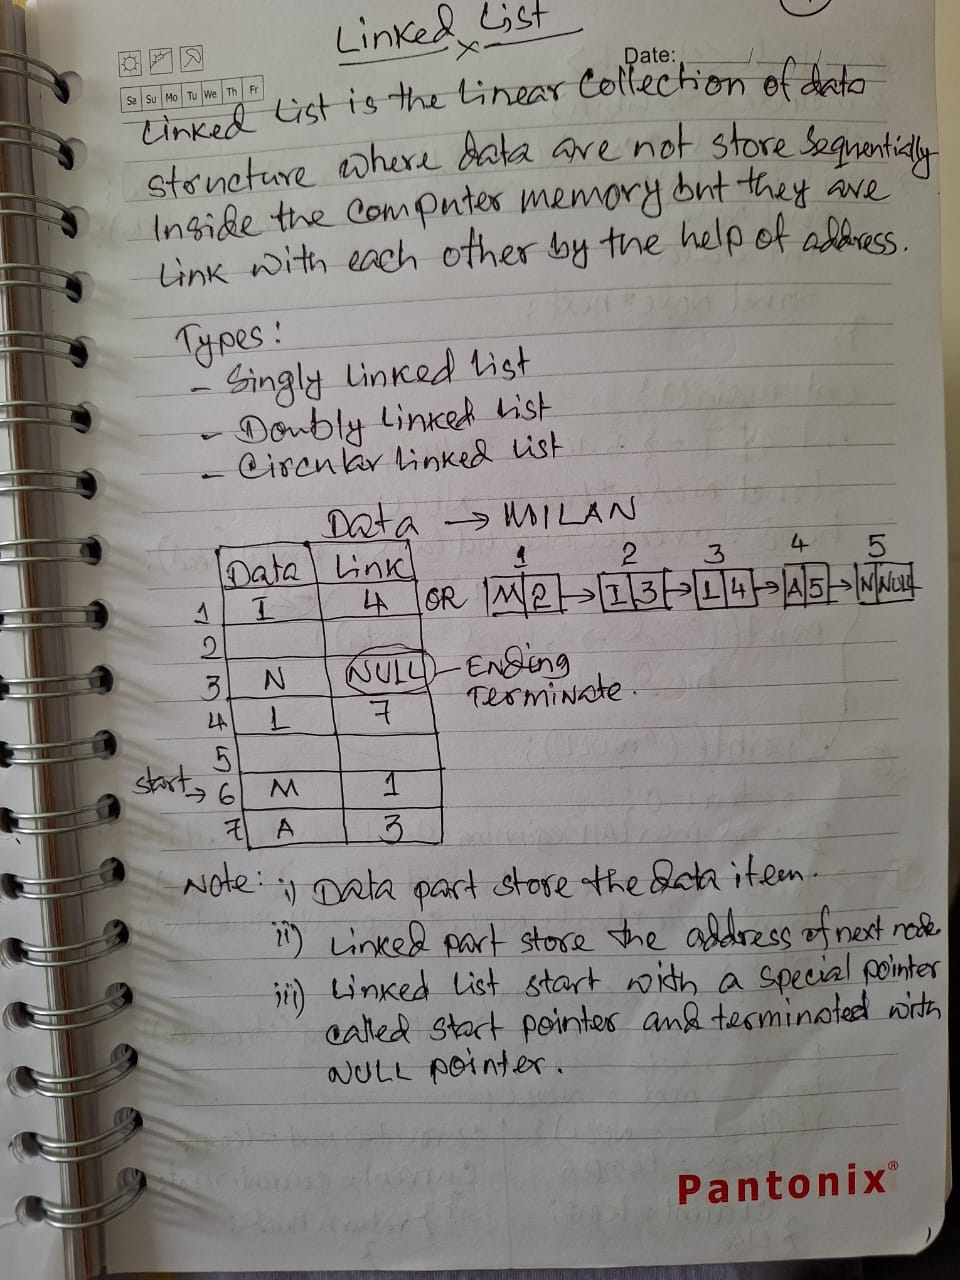 Linked List
Date:
Sa Su Mo Tu We Th Fr
Linked List is the Linear Collection of data
structure where data are not store Sequentially
Inside the computer memory but they are
Link with each other by the help of address.
Types:
- Singly linked list
- Doubly linked list
- Circular linked list
Data → MILAN
Data Link
1 I 4 OR 1 M 2 → 2 I 3 → 3 L 4 → 4 A 5 → 5 N NULL
2
3 N NULL Ending
Terminate.
4 L 7
5
start → 6 M 1
7 A 3
Note: i) Data part store the data item.
ii) Linked part store the address of next node
iii) Linked list start with a special pointer
called start pointer and terminated with
NULL pointer.
Pantonix®